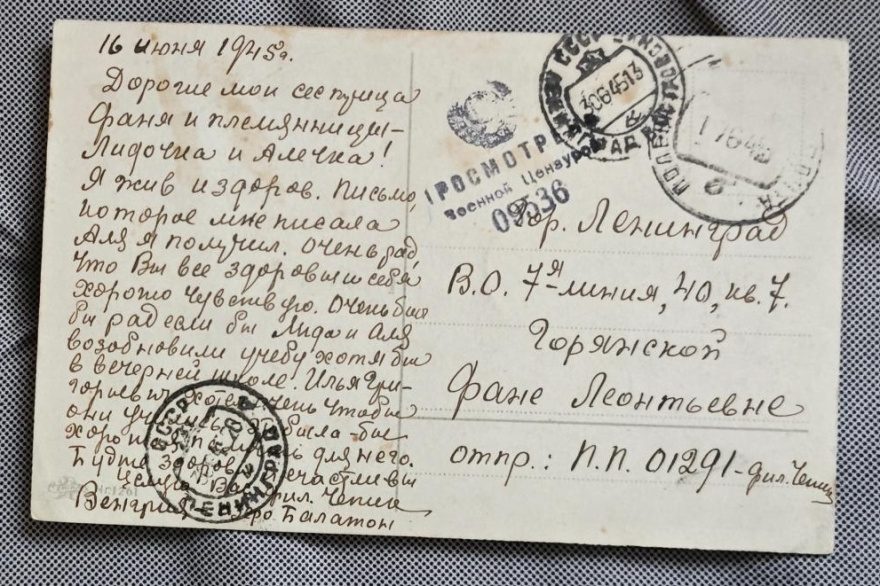 16 июня 1945г.
Дорогие мои сестрица
Фаня и племянницы-
Лидочка и Алечка!
Я жив и здоров. Письмо,
которое мне писала
Аля я получил. Очень рад,
что Вы все здоровы и себя
хорошо чувствую. Очень был
бы рад если бы Лида и Аля
возобновили учебу хотя бы
в вечерней школе. Илья Гри-
горьевич хотел очень чтобы
они была-бы
хоро для него.
Будте здоров счастливы
Целую Вас
Венгрия Балатон
ПРОСМОТРЕНО
Военной Цензурой
09836
СССР
3064513
гр. Ленинград
В.О. 7я-линия, 40, кв. 7.
Горянской
Фане Леонтьевне
отпр.: П.П. 01291-фил. Чепик
СССР
ЛЕНИНГРАД